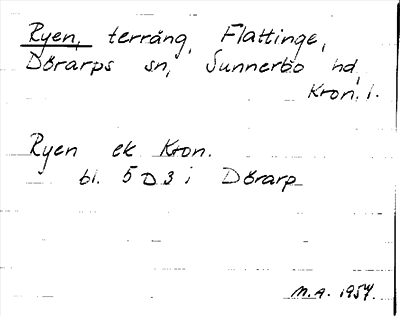 Ryen, terräng, Flattinge,
Dörarps sn, Sunnerbo hd,
Kron. l.
Ryen ek Kron.
bl. 5 D 3 i Dörarp
M.A. 1957.